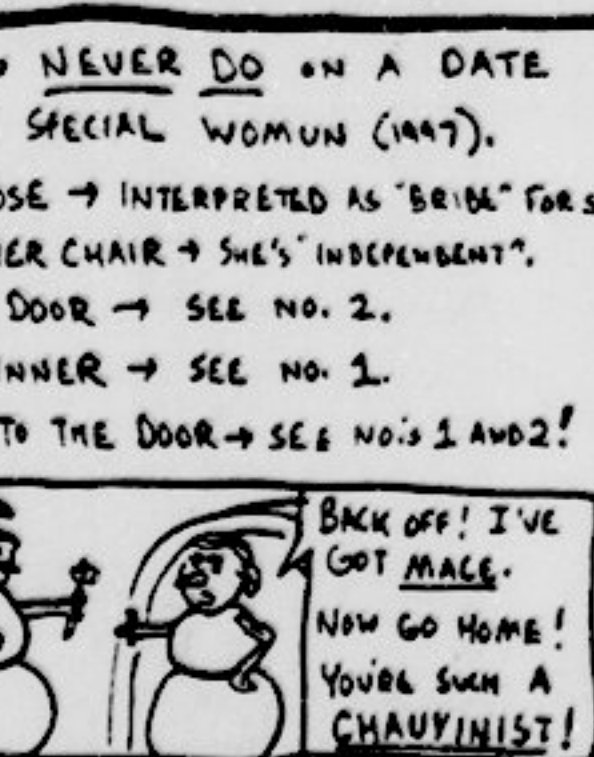 NEVER DO ON A DATE
SPECIAL WOMUN (1997).
OSE → INTERPRETED AS "BRIBE" FOR S
HER CHAIR → SHE'S "INDEPENDENT".
DOOR → SEE NO. 2.
INNER → SEE NO. 1.
TO THE DOOR → SEE NO.'S 1 AND 2!
BACK OFF! I'VE
GOT MACE.
NOW GO HOME!
YOU'RE SUCH A
CHAUVINIST!